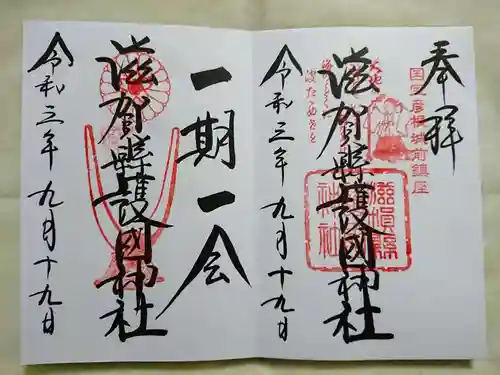 奉拝
国宝彦根城前鎮座
滋賀縣護國神社
令和三年九月十九日
一期一会
滋賀縣護國神社
令和三年九月十九日